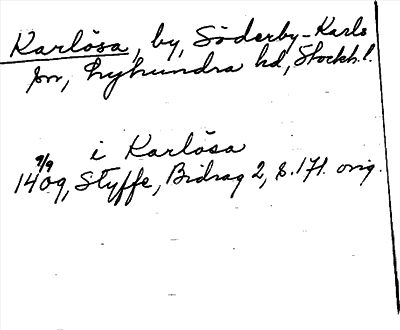 Karlösa, by, Söderby-Karls
sn, Lyhundra hd, Stockh.l.
i Karlösa
9/9
1409, Styffe, Bidrag 2, s. 171. orig.